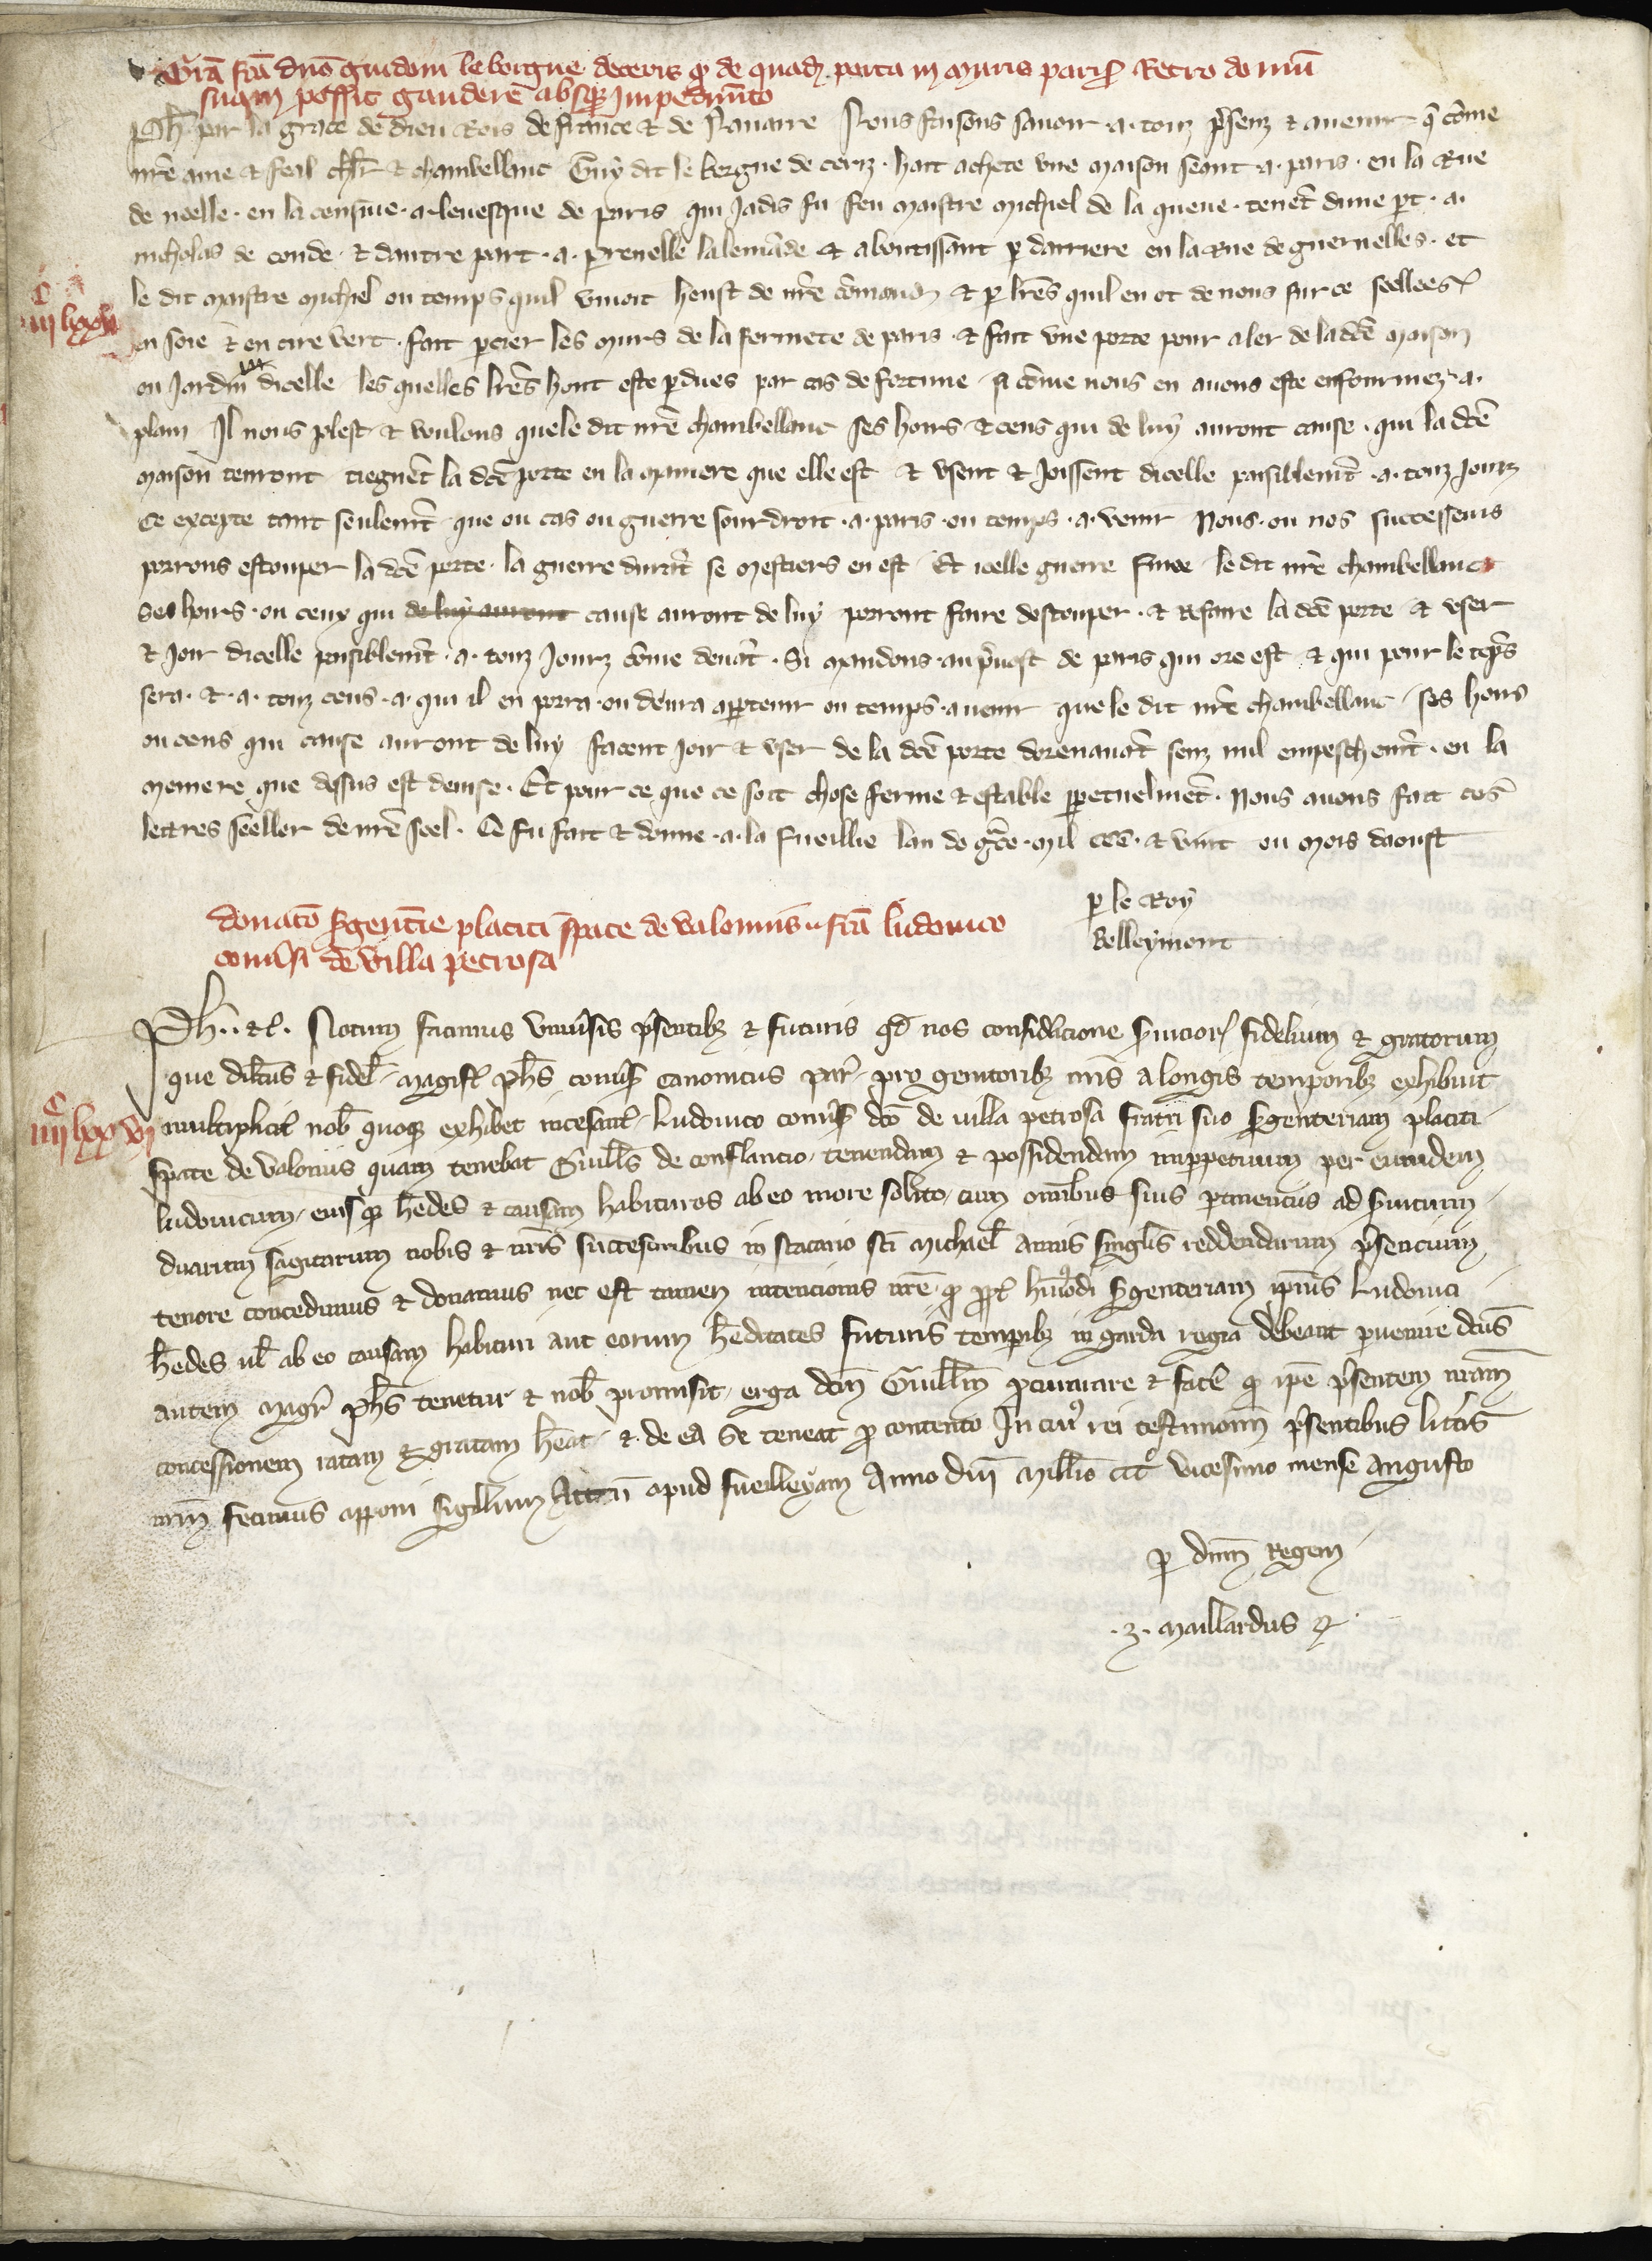 Grā fcā dno guidoni le borgne de ceris q de quad porta in muris paris Retro domū
suam possit gaudere absq impedimto
Ph par la grace de dieu Rois de france & de Nauarre Nous faisons sauoir .a. touz psenz & auenir q come
nre ame & feal chlr & chambellanc Guy dit le borgne de ceriz . hait achete vne maison seant .a. paris . en la Rue
de neelle . en la censiue .a. leuesque de paris qui Jadis fu feu maistre michiel de la queue . tenēt dune pt .a.
nicholas de conde . & dautre part .a. prenelle lalemāde & aboutissant p darriere en la Rue de guernelles . et
le dit maistre michiel ou temps quil viuoit heust de nre cōmand & p lres quil en ot de nous sur ce seellees
en soie & en cire vert . fait pcier les murs de la fermete de paris . & fait vne porte pour aler de la dce maison
ou Jardin dicelle les quelles lres hont este pdues par cas de fortune si cōme nous en auons este enfourmez .a.
plain Il nous plest & voulons que le dit nre chambellanc ses hoirs & ceus qui de luy auront cause . qui la dce
maison tenront tiegnēt la dce porte en la maniere que elle est & vsent & Joissent dicelle paisiblemt .a. touz Jourz
Ce excepte tant seulemt que ou cas ou guerre sourdroit .a. paris . ou temps .a. venir Nous . ou nos successeurs
porrons estouper la dce porte . la guerre durāt se mestiers en est . Et icelle guerre finee le dit nre chambellanc
ses hoirs . ou ceux qui de luy auront cause auront de luy porront faire destouper . & Refaire la dce porte & vser
& Joir dicelle paisiblemt .a. touz Jourz cōme deuāt . Si mandons . au puost de paris qui ore est & qui pour le tēps
sera . & .a. touz ceus .a. qui il en porra . ou deura aptenir ou temps . auenir que le dit nre chambellanc ses hoirs
ou ceus qui cause auront de luy facent joir & vser de la dce porte dorenauāt senz nul empeschemt . en la
meniere que dessus est deuise . Et pour ce que ce soit chose ferme & estable ppetuelmēt . Nous auons fait ces
lettres seeller de nre seel . Ce fu fait & donne .a. la fueillie lan de gce . mil ccc . & vint ou mois daoust
p le Roy
belleymont
donatō sgentie placiti spate de valoniis fcā ludouico
comitis de villa petrosa
iiii lxxv
c
Ph . &c . Notum facimus vniusis psentibz & futuris qd nos considacione suicior fidelium & gratorum
que dilcus & fidel magist phs comitis canonicus par pro genitoribz nris a longis temporibz exhibuit
multiplicit nob quoqz exhibet incesant Ludouico comitis dco de uilla petrosa fratri suo sgenteriam placiti
spate de valoniis quam tenebat Guills de conflancio . tenendam & possidendam imppetuum per eumdem
ludouicum eiusqz hedes & causam habituros ab eo more solito . cum omibus suis ptinenciis ad suicium
duarum sagitarum nobis & nris successoribus in scacario sci michael annis singlis reddendarum psencium
tenore concedimus & donamus nec est tamen intencionis nre q ppt hmodi sgenteriam ipius Ludouici
hedes ul ab eo causam habituri aut eorum heditates futuris tempibz in garda regia debeant puenire dcus
autem magr phs tenetur & nob promisit . erga dcm Guillm pcurare & facē q ipe psentem nram
concessionem ratam & gratam heat . & de ea se teneat p contento In cui rei testimoniū psentibus litis
nrm fecimus apponi sigillum Actū apud fuelleyam Anno dni millio ccc vicesimo mense augusto
c
iiii lxx vi
p dnm Regem
.J. maillardus